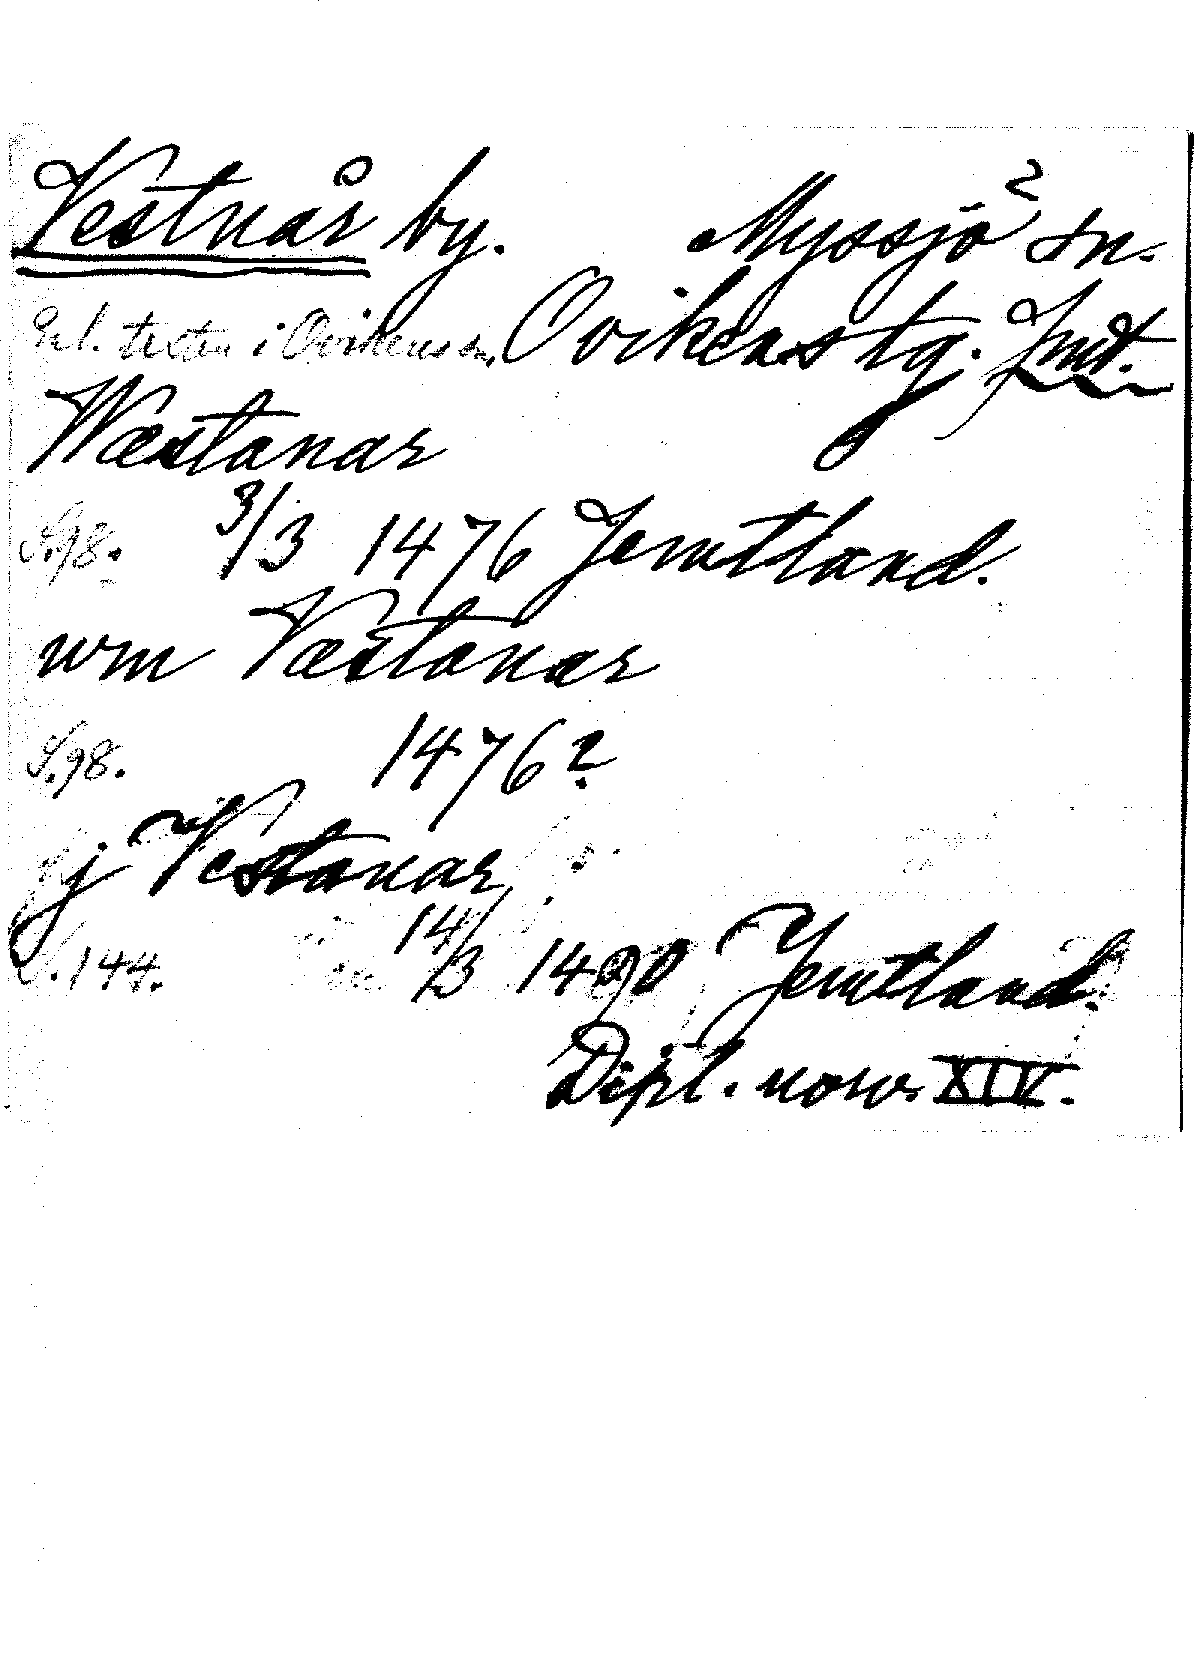 Vestnår by. Myssjö? sn.
Enl. texten i Ovikens sn, Ovikens tg. Jmt.
Wæstanar
S.98. 3/3 1476 Jemtland.
wm Væstanar
S.98. 1476?
j Vestanar
S.144. 14/3 1490 Jemtland.
Dipl. norv. XIV.